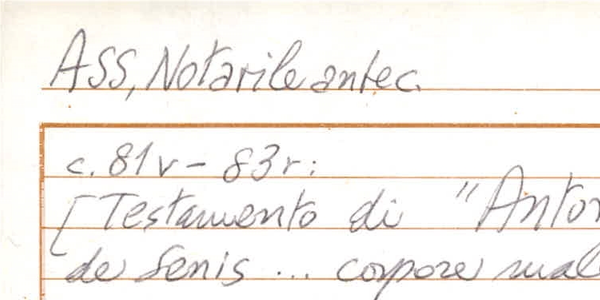 ASS, Notarile antec.
c. 81v - 83r:
[Testamento di "Anton
de Senis ... corpore mal